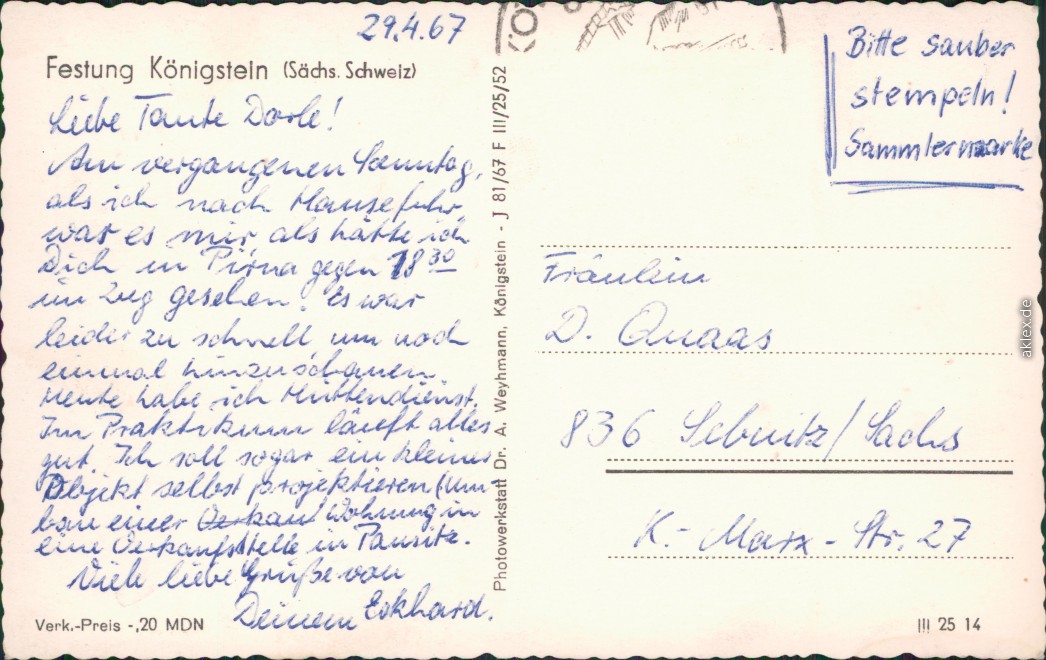 29.4.67
Festung Königstein (Sächs. Schweiz)
Liebe Tante Dorle!
Am vergangenen Sonntag,
als ich nach Hause fuhr,
war es mir, als hätte ich
Dich in Pirna gegen 18 30
im Zug gesehen. Es war
leider zu schnell, um noch
einmal hinzuschauen.
Heute habe ich Hüttendienst.
Im Praktikum läuft alles
gut. Ich soll sogar ein kleines
Objekt selbst projektieren (Um-
bau einer Verkauf Wohnung in
eine Verkaufsstelle in Panitz.
Viele liebe Grüße von
Deinem Eckhard.
Verk.-Preis -,20 MDN
Photowerkstatt Dr. A. Weyhmann, Königstein - J 81/67 F III/25/52
KÖ
Bitte sauber
stempeln!
Sammlermarke
Fräulein
D. Quaas
836 Sebnitz/Sachs
K.-Marx-Str. 27
III 25 14
aklex.de